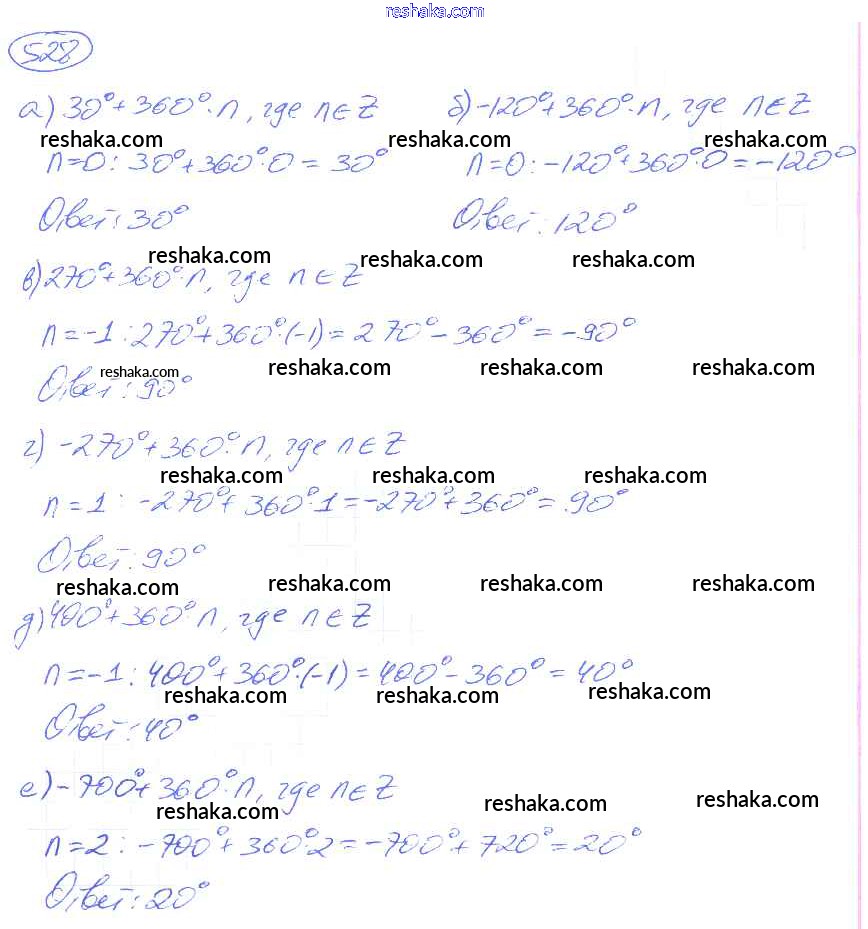 reshaka.com
528
а) 30° + 360°·n, где n∈Z
б) -120° + 360°·n, где n∈Z
reshaka.com reshaka.com reshaka.com
n=0: 30° + 360°·0 = 30°
n=0: -120° + 360°·0 = -120°
Ответ: 30°
Ответ: 120°
reshaka.com reshaka.com reshaka.com
в) 270° + 360°·n, где n∈Z
n=-1: 270° + 360°·(-1) = 270° - 360° = -90°
reshaka.com reshaka.com reshaka.com reshaka.com
Ответ: 90°
г) -270° + 360°·n, где n∈Z
reshaka.com reshaka.com reshaka.com
n=1: -270° + 360°·1 = -270° + 360° = 90°
Ответ: 90°
reshaka.com reshaka.com reshaka.com reshaka.com
д) 400° + 360°·n, где n∈Z
n=-1: 400° + 360°·(-1) = 400° - 360° = 40°
reshaka.com reshaka.com reshaka.com
Ответ: 40°
е) -700° + 360°·n, где n∈Z
reshaka.com reshaka.com reshaka.com
n=2: -700° + 360°·2 = -700° + 720° = 20°
Ответ: 20°